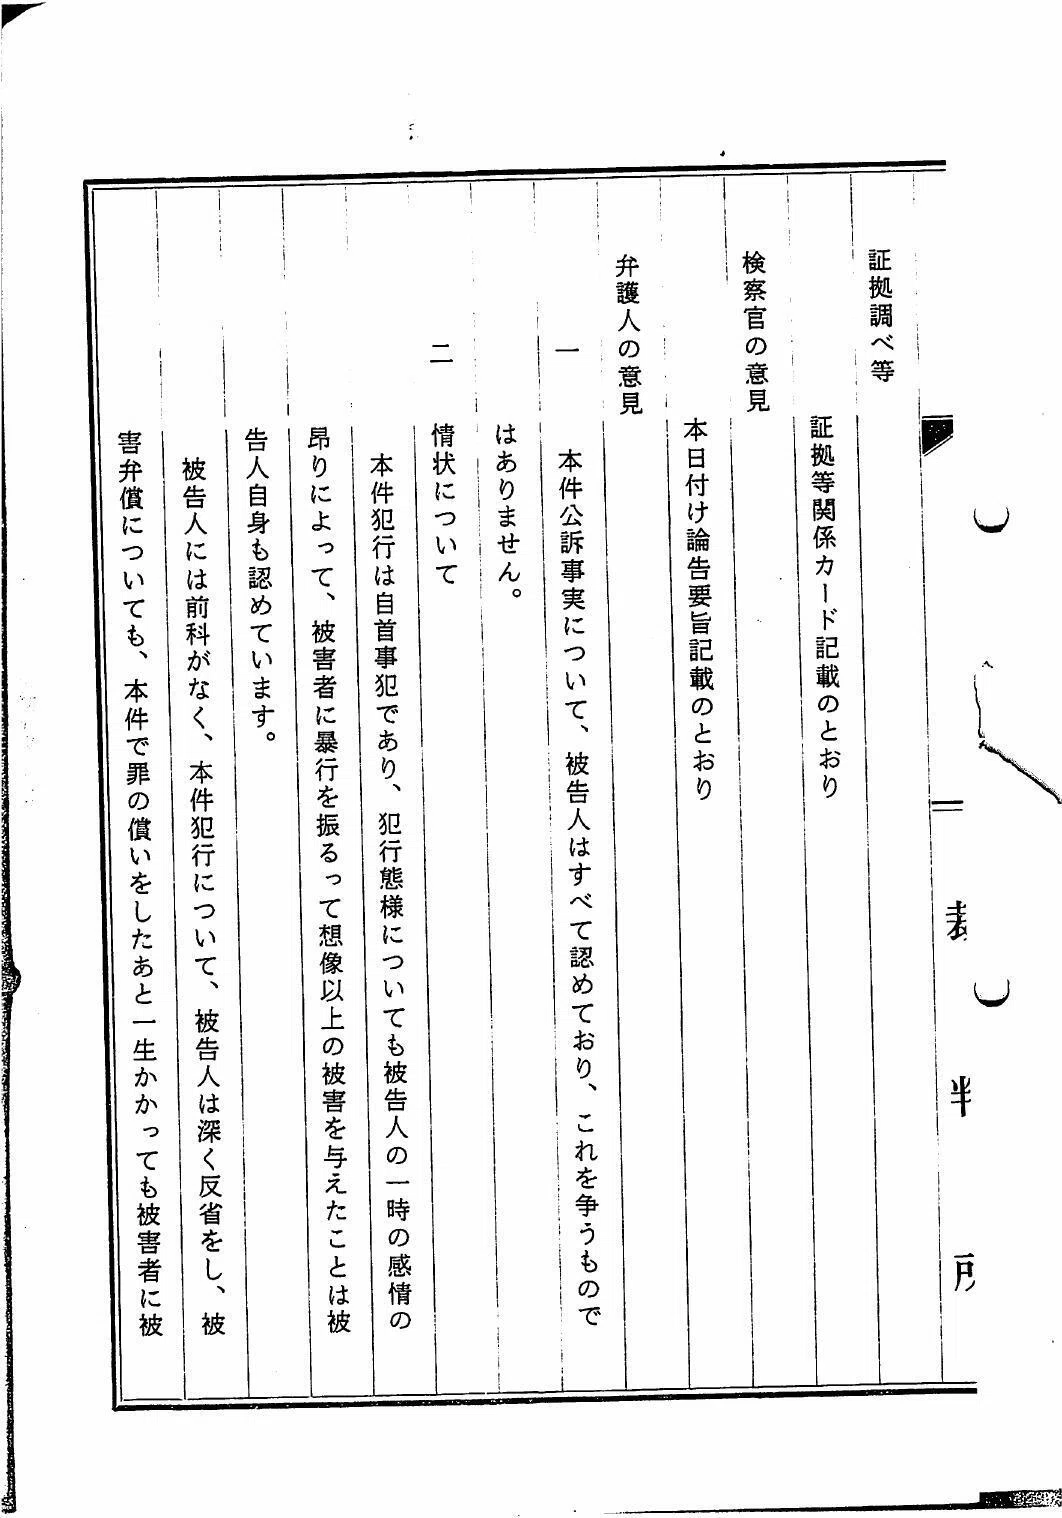 証拠調べ等
証拠等関係カード記載のとおり
検察官の意見
本日付け論告要旨記載のとおり
弁護人の意見
一　本件公訴事実について、被告人はすべて認めており、これを争うもので
はありません。
二　情状について
本件犯行は自首事犯であり、犯行態様についても被告人の一時の感情の
昂りによって、被害者に暴行を振るって想像以上の被害を与えたことは被
告人自身も認めています。
被告人には前科がなく、本件犯行について、被告人は深く反省をし、被
害弁償についても、本件で罪の償いをしたあと一生かかっても被害者に被
裁判所